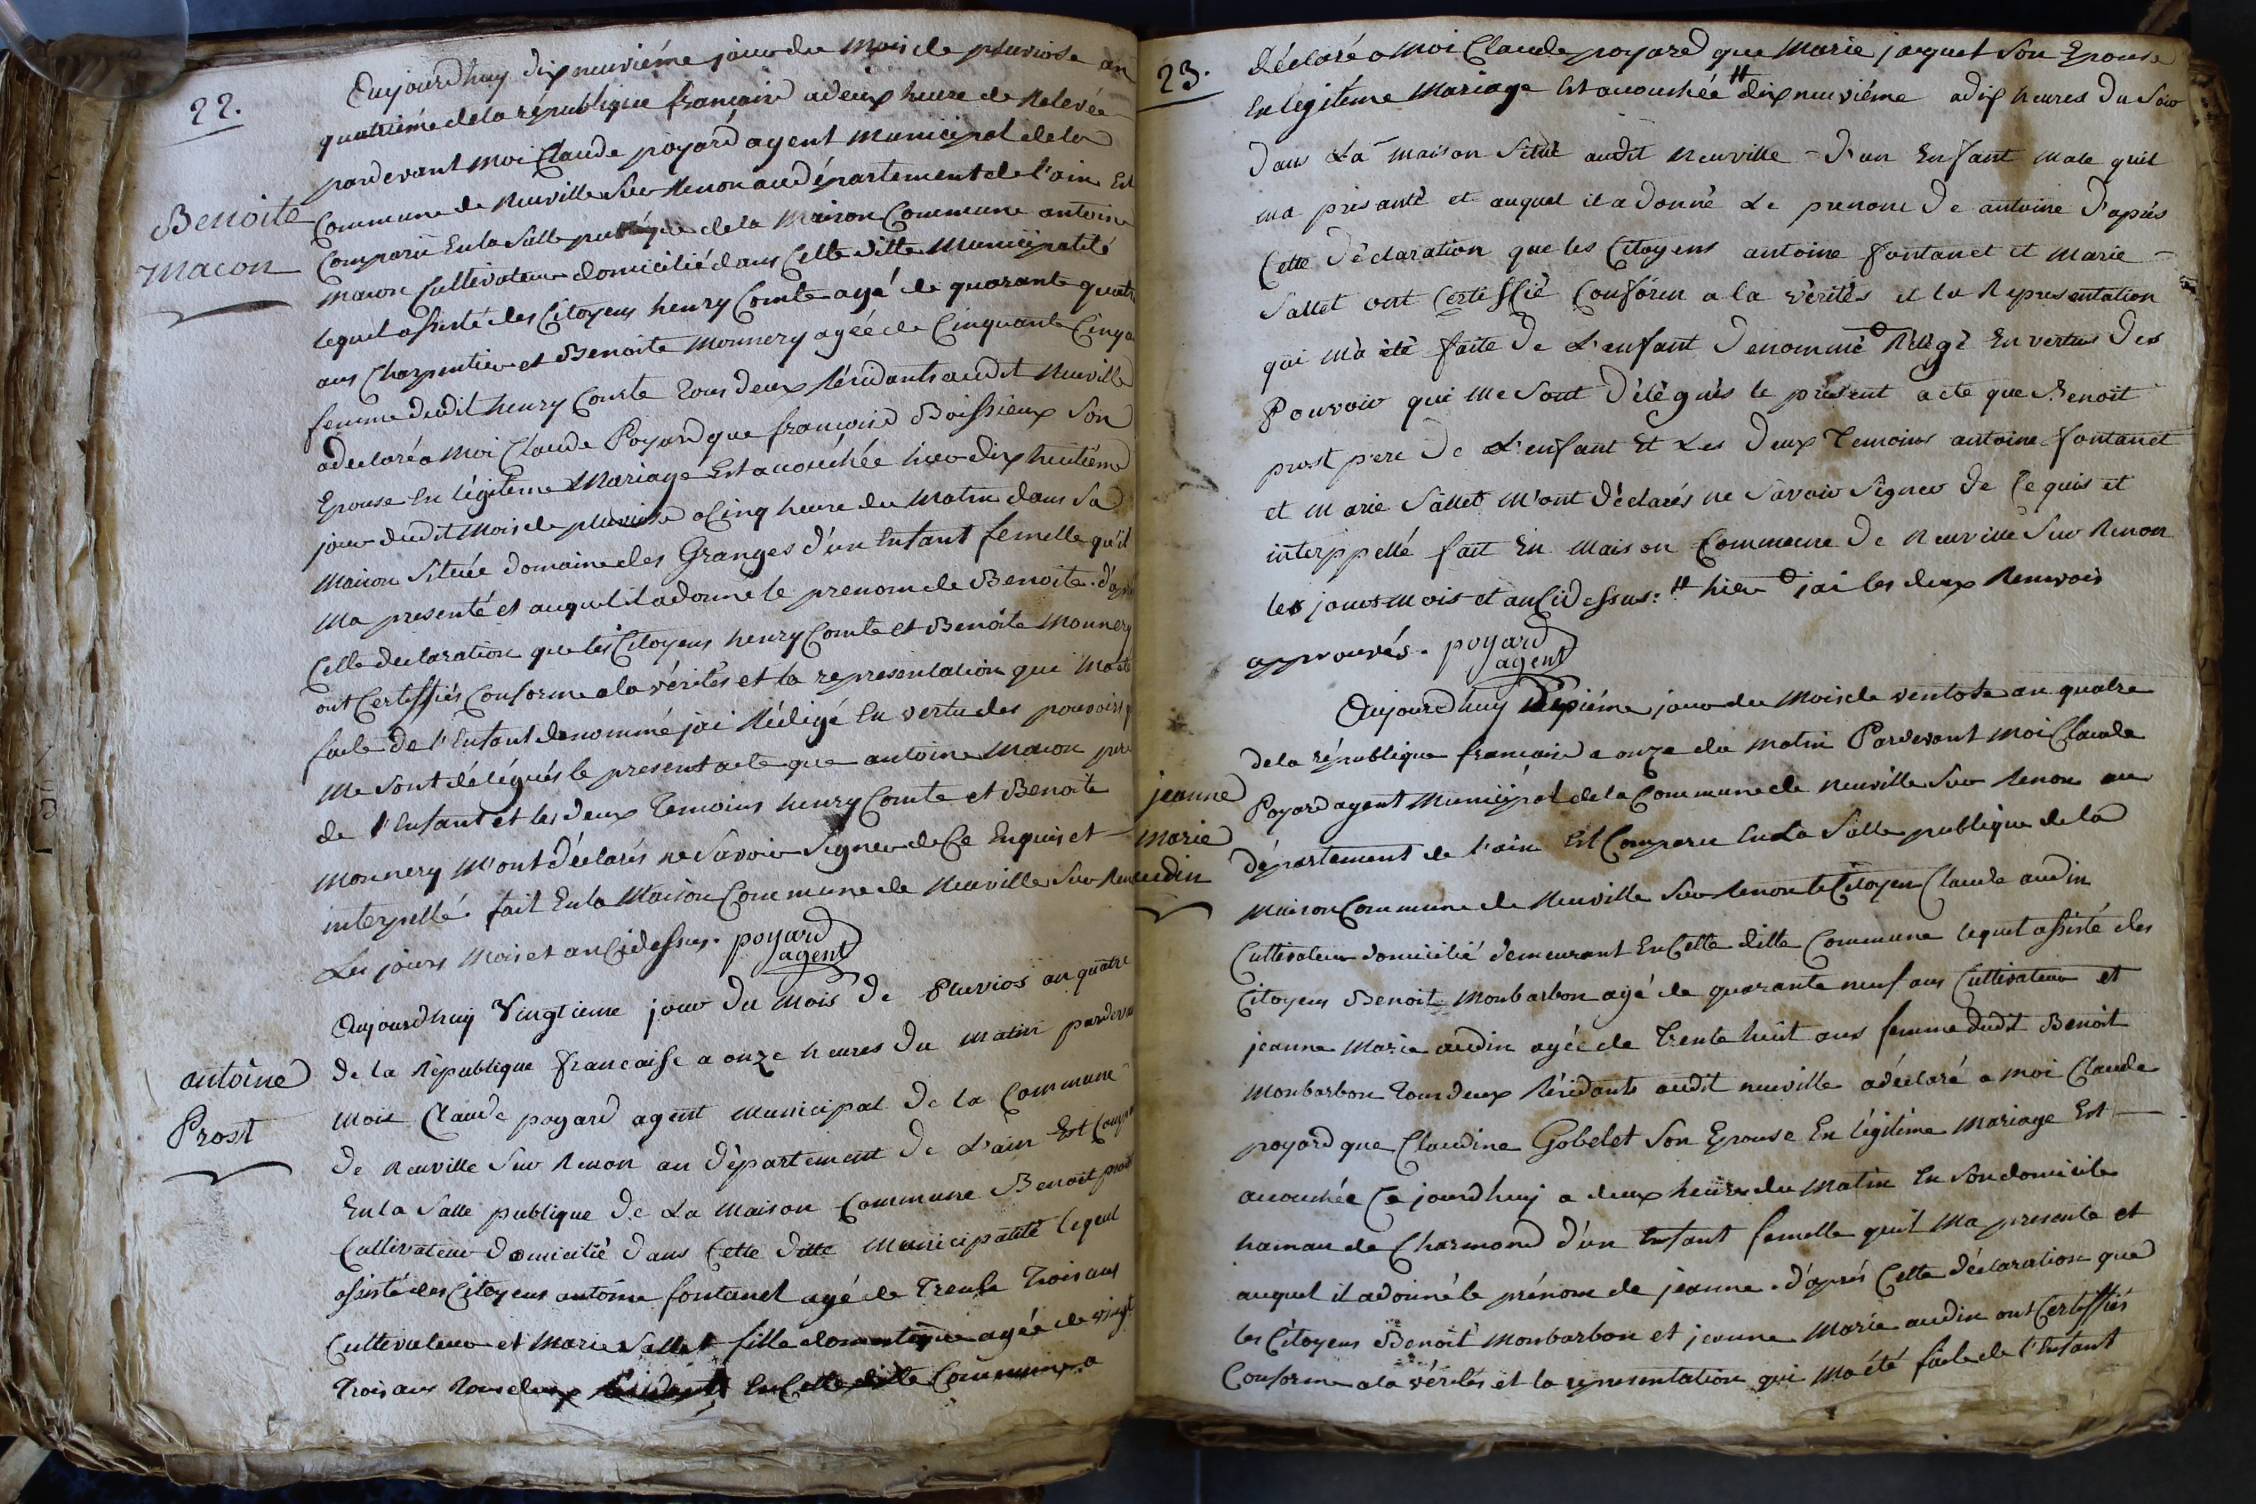 22.
Benoite
Macon
Aujourdhuy dix neuviéme jour du Mois de pluviose an
quatriéme de la république francaise a deux heure de Relevée
pardevant moi Claude poyard agent Municipal de la
Commune de Neuville Sur Renon au département de l'ain Est
Comparu En la Salle publique de la Maison Commune antoine
Macon Cultivateur domicilié dans Cette ditte Municipalité
lequel assisté des Citoyens henry Comte agé de quarante quatre
ans Charpentier et Benoite Monnery agéé de Cinquante Cinq a
femme dudit henry Comte Tous deux Résidants audit Neuville
a declaré a Moi Claude Poyard que francoise Boissieux Son
Epouse En légitéme Mariage Est acouchée hier dix huitiéme
jour dudit Mois de pluviose a Cinq heure du Matin dans Sa
Maison Située domaine des Granges d'un Enfant femelle qu'il
Ma presenté et auquel il a donné le prenom de Benoite. d'aprés
Cette declaration que les Citoyens henry Comte et Benoite Monnery
ont Certiffiés Conforme a la vérités et la representation qui Ma été
faite de l'Enfant denommé jai Rédigé En vertu des pouvoirs q
Me Sont délégués le present acte que antoine Macon pere
de l'Enfant et les deux Temoins henry Comte et Benoite
Monnery M'ont déclarés ne Savoir Signer de Ce Enquis et
interpellé. fait En la Maison Commune de Neuville Sur Ren
Les jours Mois et an Cidessus. poyard
agent
antoine
Prost
Aujourdhuy Vingtieme jour du mois de Pluvios an quatre
de la République francaise a onze heures du matin pardevan
moi Claude poyard agent municipal de la Commune
de Neuville Sur Renon au département de L'ain Est Compa
En la Salle publique de La Maison Commune Benoit prost
Cultivateur domicilié dans Cette ditte Municipalité lequel
assisté des Citoyens antoine fontanel agé de Trente Trois ans
Cultivateur et Marie Sallet fille domestique agée de vingt
Trois ans Tous deux Résidants En Cette ditte Commune a
23.
déclaré a Moi Claude poyard que Marie jaquet Son Epouse
En légitéme Mariage Est acouchée # dix neuviéme a dix heures du Soir
dans La maison Situé audit Neuville - d'un Enfant male quil
ma présanté et auquel il a donné Le prenom de antoine d'aprés
Cette déclaration que les Citoyens antoine fontanet et Marie
Sallet ont Certiffié Conform a la vérités et la Representation
qui m'a été faite de L'enfant denommé o Rédigé En vertus des
Pouvoir qui me Sont délégués le présent acte que Benoit
prost pere de L'enfant Et Les deux Temoins antoine fontanet
et Marie Sallet M'ont déclarés ne Savoir Signer de Ce quis et
interppellé fait En Maison Commune de Neuville Sur Renon
les jours Mois et an Cidessus: # hier o jai les deux Renvois
approuvés. poyard
agent
jeanne
Marie
audin
Aujourdhuy Sepiéme jour du Mois de ventose an quatre
de la république francaise a onze du matin Pardevant Moi Claude
Poyard agent Municipal de la Commune de Neuville Sur Renon au
département de l'ain Est Comparu En La Salle publique de la
Maison Commune de Neuville Sur Renon le Citoyen Claude audin
Cultivateur domicilié demeurant En Cette ditte Commune lequel assisté des
Citoyens Benoit Monbarbon agé de quarante neuf ans Cultivateur et
jeanne Marie audin agéé de Trente huit ans femme dudit Benoit
Monbarbon Tous deux Résidants audit neuville a déclaré a Moi Claude
poyard que Claudine Gobelet Son Epouse En légitéme Mariage Est
acouchée Ce jourdhuy a deux heures du Matin En Son domicile
hamau de Charmond d'un Enfant femelle quil Ma presente et
auquel il a donné le prénom de jeanne. d'aprés Cette déclaration que
les Citoyens Benoit Monbarbon et jeanne Marie audin ont Certiffiés
Conforme a la vérités et la representation qui Ma été faite de l'Enfant